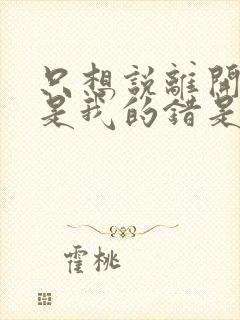 只想說離開
是我的錯是
霍桃